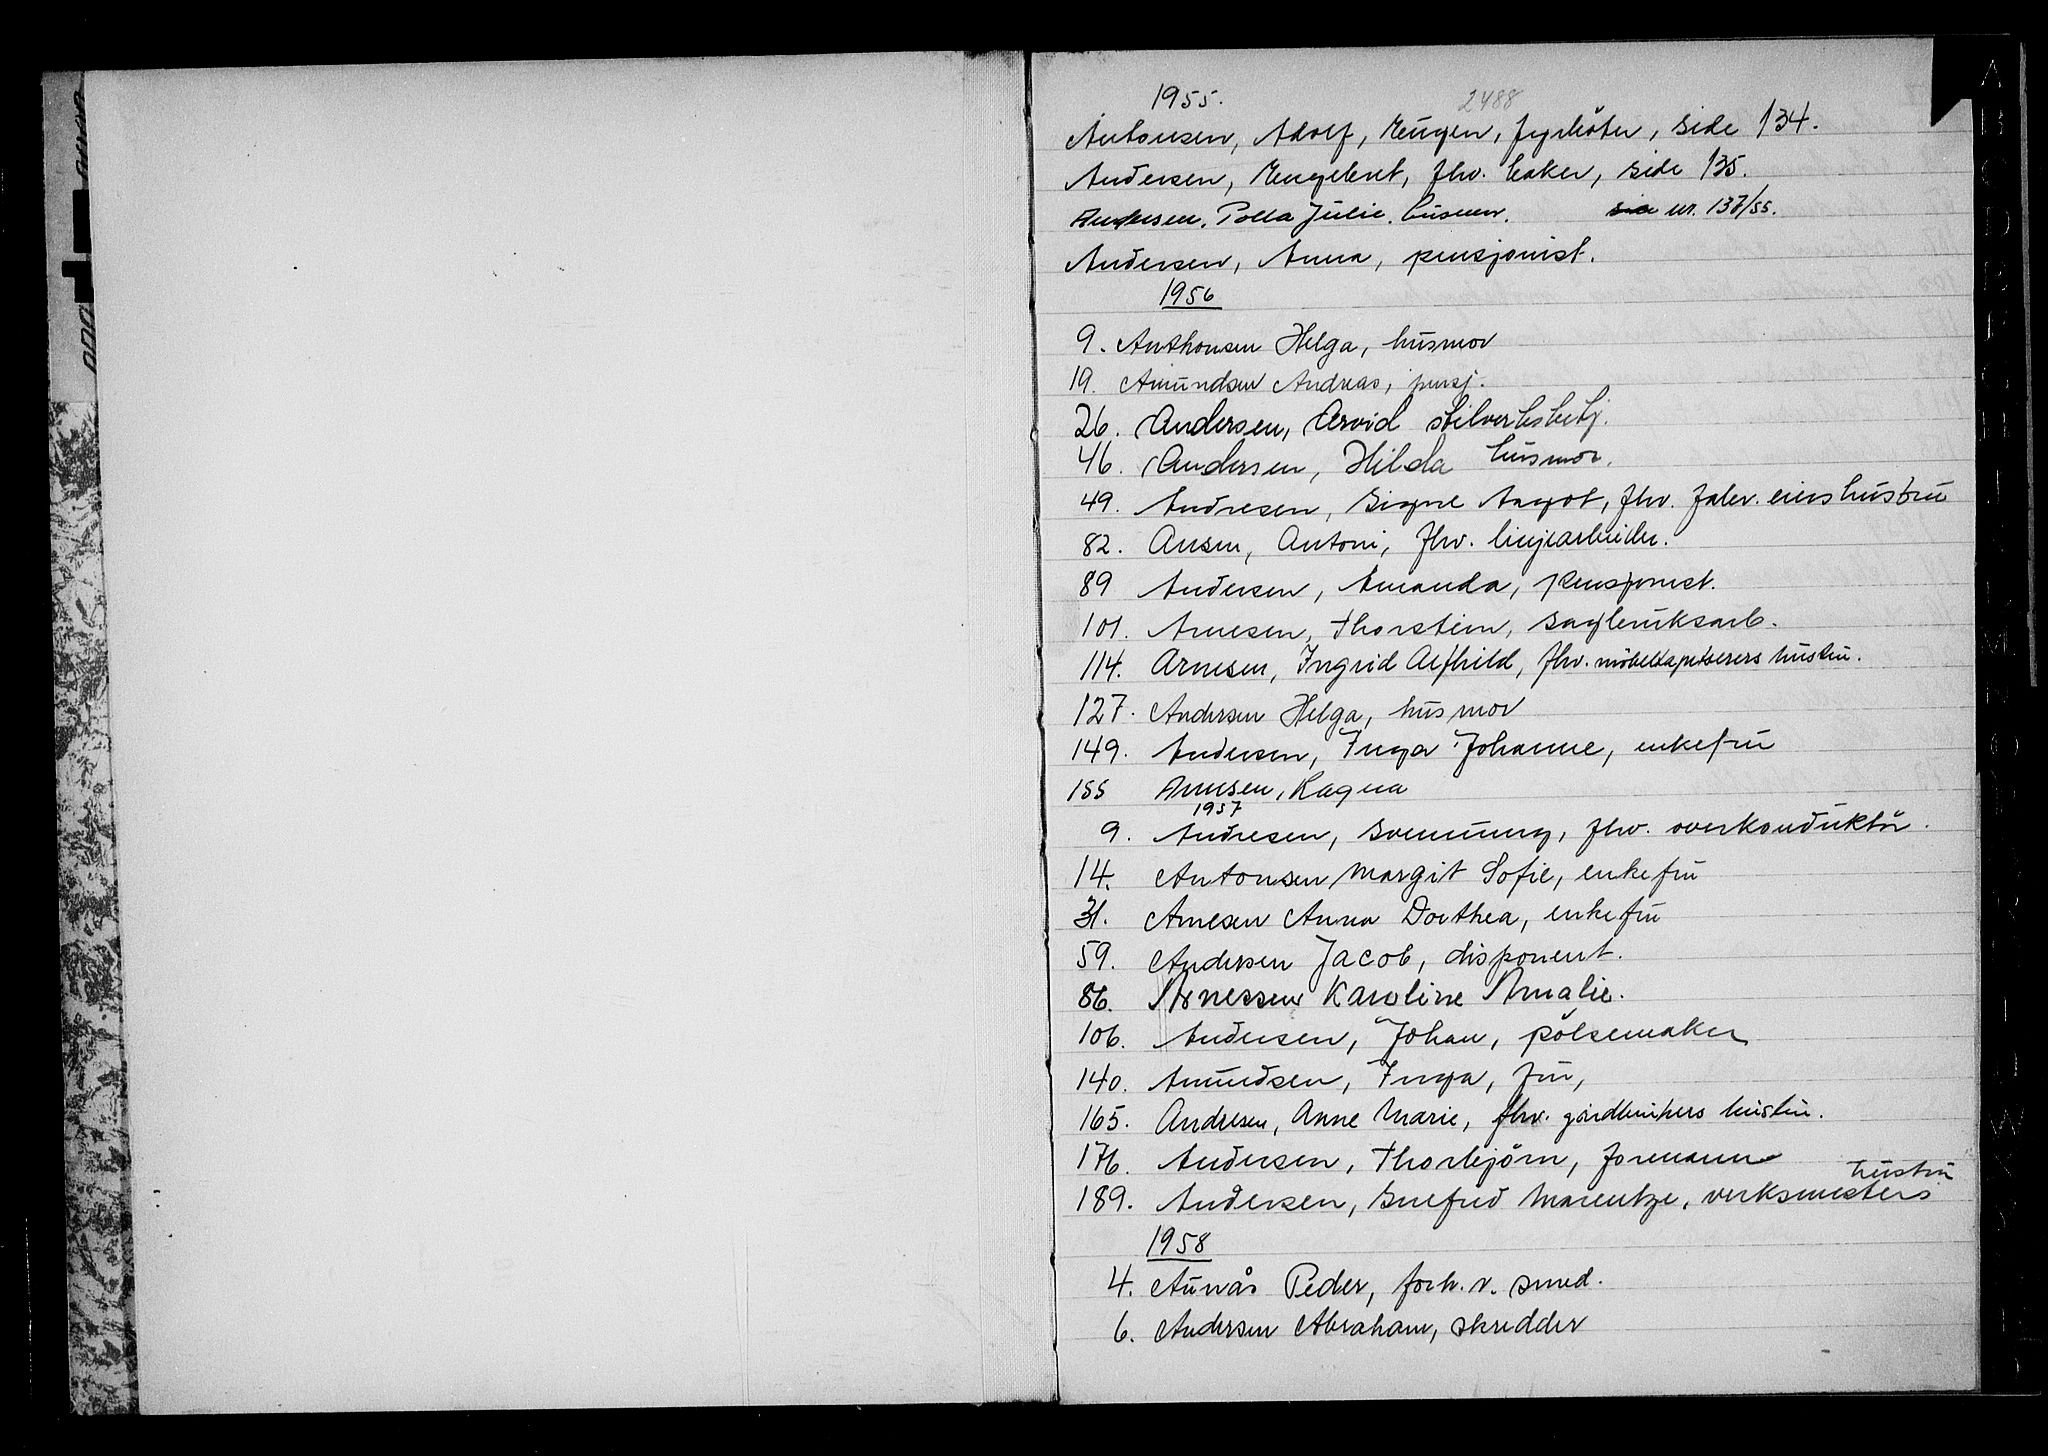 1955.
2488
Antonsen, Adolf, Eugen, fyrböter, side 134.
Andersen, Engebret, fhv. baker, side 135.
Andersen. Polla Julie. husmor. nr. 137/55.
Andersen, Anna, pensjonist.
1956
9. Anthonsen Helga, husmor
19. Amundsen Andreas, pensj.
26. Andersen, Arvid
46. Andersen, Hilda husmor.
49. Andresen, Signe Aagot, fhv. fabr. eiers hustru
82. Ansen, Antoni, fhv. linjearbeider.
89 Andersen, Amanda, pensjonist.
101. Arnesen, Thorstein, sagbruksarb.
114. Arnesen, Ingrid Alfhild, fhv. möbeltapetserers hustru.
127. Andersen Helga, husmor
149. Andersen, Inga Johanne, enkefru
155 Arnesen, Ragna
1957
9. Andresen, Svennung, fhv. overkonduktör.
14. Antonsen Margit Sofie, enkefru
31. Arnesen Anna Dorthea, enkefru
59. Andersen Jacob, disponent.
86. Arnessen Karoline Amalie.
106. Andersen, Johan, pölsemaker
140. Amundsen, Inga, fru,
165. Andresen, Anne Marie, fhv. gårdbrukers hustru.
176. Andersen, Thorbjörn, formann
hustru
189. Andersen, Snefrid Marentze, verksmesters
1958
4. Aunås Peder, forh. v. smed.
6. Andersen Abraham, skredder